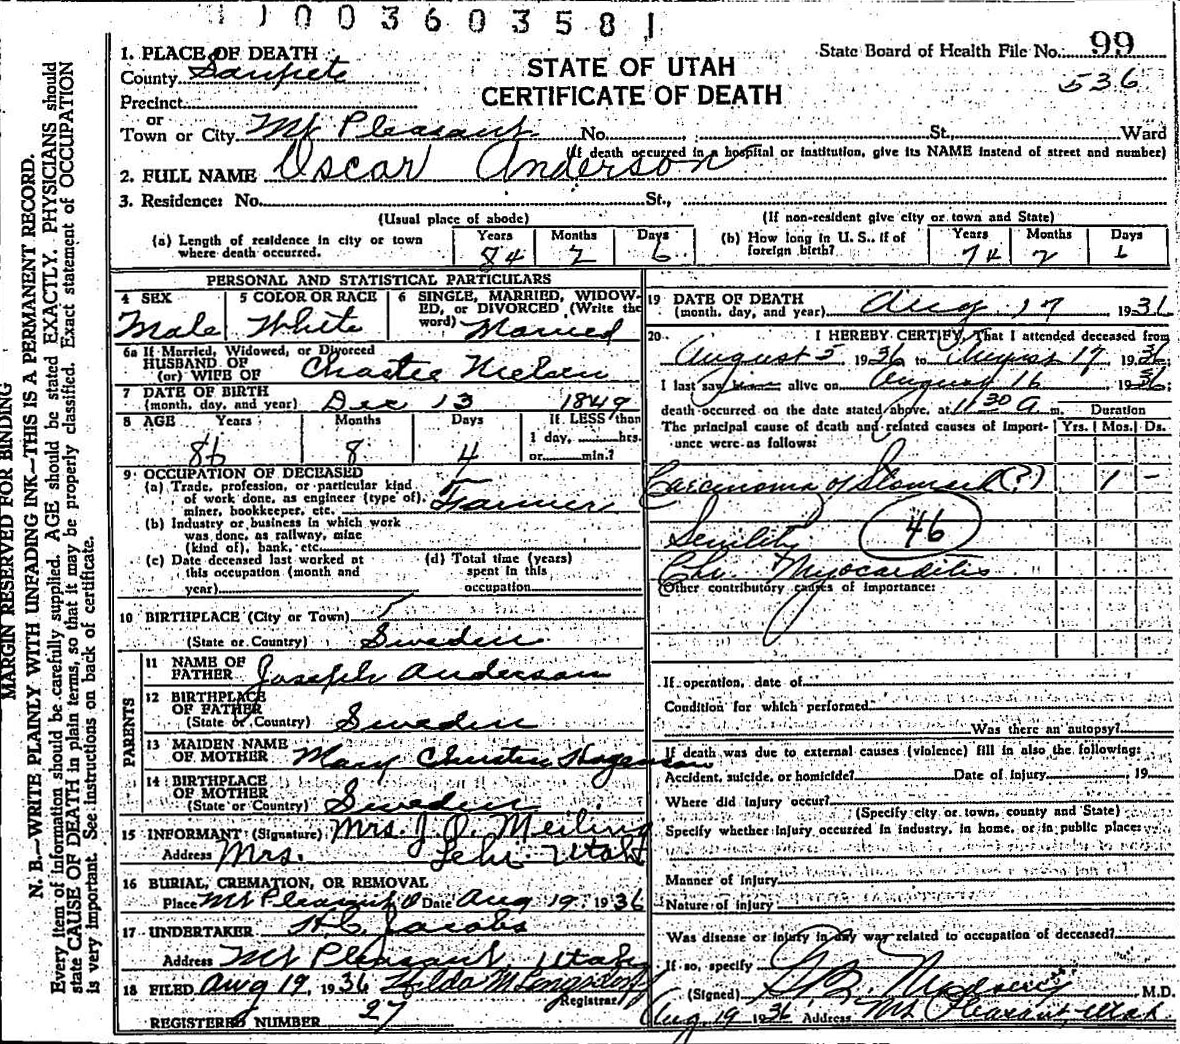 1 0 0 3 6 0 3 5 8 1
MARGIN RESERVED FOR BINDING
N. B.—WRITE PLAINLY WITH UNFADING INK—THIS IS A PERMANENT RECORD.
Every item of information should be carefully supplied. AGE should be stated EXACTLY. PHYSICIANS should
state CAUSE OF DEATH in plain terms, so that it may be properly classified. Exact statement of OCCUPATION
is very important. See instructions on back of certificate.
1. PLACE OF DEATH
County Sanpete
Precinct
or
Town or City Mt Pleasant No. St., Ward
STATE OF UTAH
CERTIFICATE OF DEATH
State Board of Health File No. 99
536
(If death occurred in a hospital or institution, give its NAME instead of street and number)
2. FULL NAME Oscar Anderson
3. Residence: No. St.,
(Usual place of abode) (If non-resident give city or town and State)
(a) Length of residence in city or town where death occurred. Years Months Days
2 6
(b) How long in U. S., if of foreign birth? Years Months Days
74 2 6
PERSONAL AND STATISTICAL PARTICULARS
4 SEX Male
5 COLOR OR RACE White
6 SINGLE, MARRIED, WIDOWED, or DIVORCED (Write the word) Married
6a If Married, Widowed, or Divorced
HUSBAND OF
(or) WIFE OF Chastie Nielsen
7 DATE OF BIRTH
(month, day, and year) Dec 13 1849
8 AGE Years Months Days If LESS than
1 day, hrs.
or min.?
86 8 4
9 OCCUPATION OF DECEASED
(a) Trade, profession, or particular kind
of work done, as engineer (type of),
miner, bookkeeper, etc. Farmer
(b) Industry or business in which work
was done, as railway, mine
(kind of), bank, etc.
(c) Date deceased last worked at
this occupation (month and
year)
(d) Total time (years)
spent in this
occupation
10 BIRTHPLACE (City or Town)
(State or Country) Sweden
PARENTS
11 NAME OF
FATHER Joseph Anderson
12 BIRTHPLACE
OF FATHER
(State or Country) Sweden
13 MAIDEN NAME
OF MOTHER Mary Christen
14 BIRTHPLACE
OF MOTHER
(State or Country) Sweden
15 INFORMANT (Signature) Mrs. J. O. Meiling
Address Mrs. Lehi Utah
16 BURIAL, CREMATION, OR REMOVAL
Place Mt Pleasant Date Aug 19, 1936
17 UNDERTAKER H C Jacobs
Address Mt Pleasant, Utah
18 FILED Aug 19, 1936 Hilda M Longsdorf
Registrar
REGISTERED NUMBER 27
19 DATE OF DEATH
(month, day, and year) Aug. 17 1936
20 I HEREBY CERTIFY, That I attended deceased from
August 5 1936 to August 17 1936
I last saw alive on August 16 1936;
death occurred on the date stated above, at 11 30 a m.
The principal cause of death and related causes of importance were as follows:
Duration
Yrs. Mos. Ds.
Carcinoma of Stomach (?) 1 -
Senility 46
Chr. Myocarditis
Other contributory causes of importance:
If operation, date of
Condition for which performed
Was there an autopsy?
If death was due to external causes (violence) fill in also the following:
Accident, suicide, or homicide? Date of injury , 19
Where did injury occur?
(Specify city or town, county and State)
Specify whether injury occurred in industry, in home, or in public place:
Manner of Injury
Nature of injury
Was disease or injury in any way related to occupation of deceased?
If so, specify
(Signed) M.D.
Aug 19 1936 Address Mt Pleasant, Utah